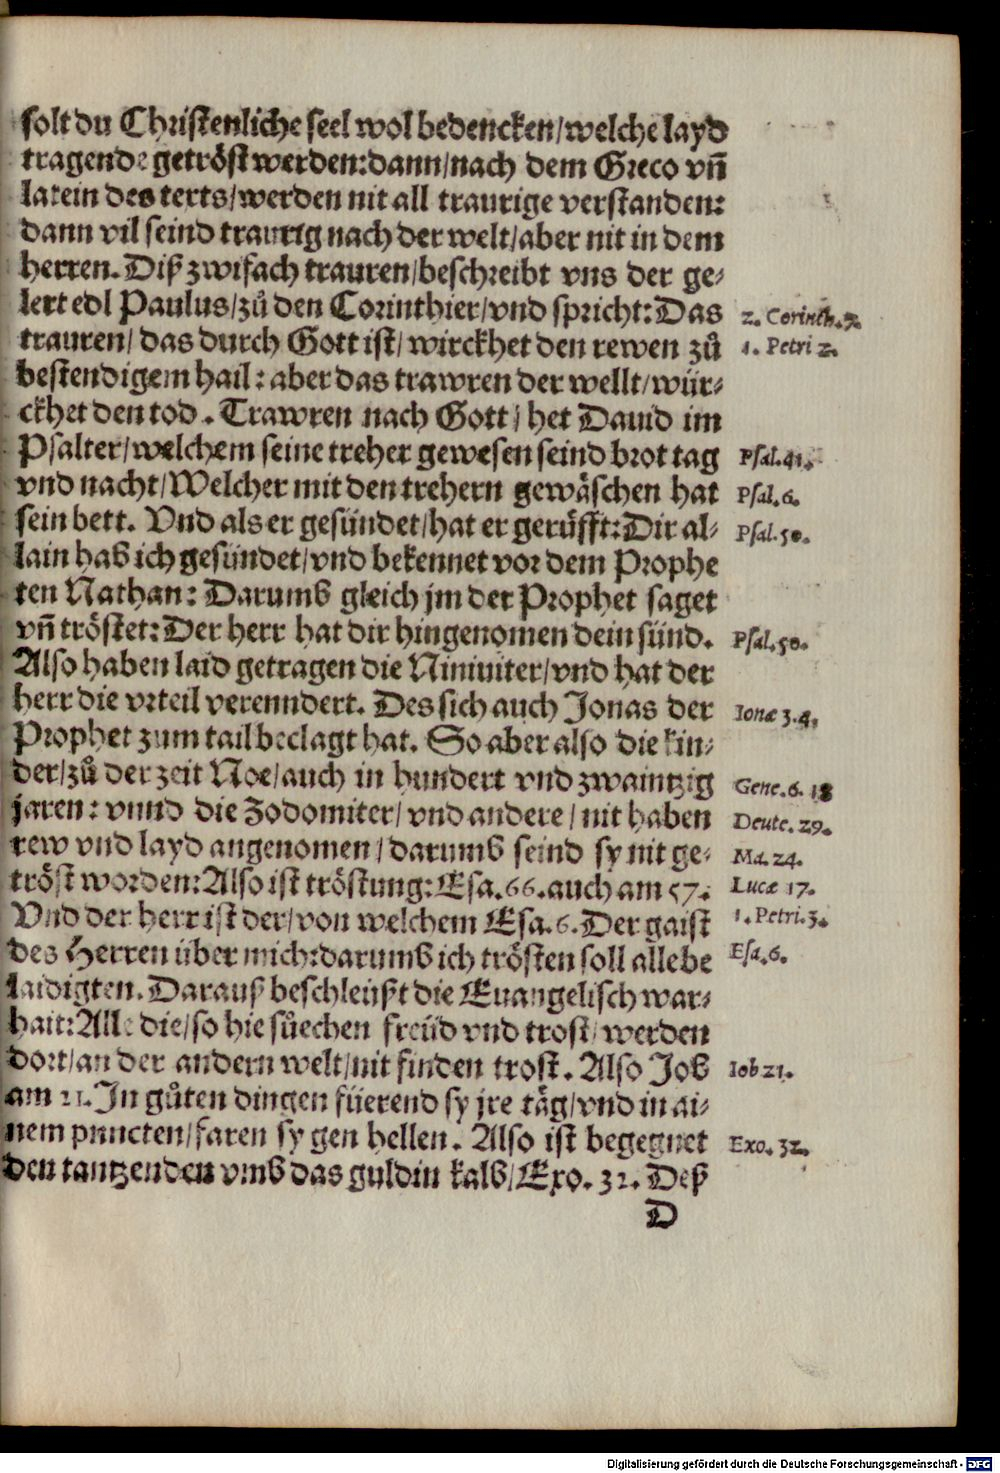 solt du Christenliche seel wol bedencken/welche layd
tragende getröst werden:dann/nach dem Greco vñ
latein des texts/werden nit all traurige verstanden:
dann vil seind traurig nach der welt/aber nit in dem
herren. Diß zwifach trauren/beschreibt vns der ge-
lert edl Paulus/zů den Corinthier/vnd spricht: Das
2. Corinth. 7.
trauren/ das durch Gott ist/ wirckhet den rewen zů
1. Petri 2.
bestendigem hail: aber das trawren der wellt/wür-
ckhet den tod. Trawren nach Gott/ het Dauid im
Psalter/welchem seine treher gewesen seind brot tag
Psal. 41.
vnd nacht/Welcher mit den trehern gewäschen hat
Psal. 6.
sein bett. Vnd als er gesündet/hat er gerüfft: Dir al-
Psal. 50.
lain hab ich gesündet/vnd bekennet vor dem Prophe
ten Nathan: Darumb gleich jm der Prophet saget
vñ tröstet: Der herr hat dir hingenomen dein sünd.
Psal. 50.
Also haben laid getragen die Niniuiter/vnd hat der
herr die vrteil verenndert. Des sich auch Jonas der
Ionæ 3. 4.
Prophet zum tail beclagt hat. So aber also die kin-
der/zů der zeit Noe/auch in hundert vnd zwaintzig
Gene. 6. 18
jaren: vnnd die Zodomiter/ vnd andere/ nit haben
Deute. 29.
rew vnd layd angenomen/ darumb seind sy nit ge-
Ma. 24.
tröst worden: Also ist tröstung: Esa. 66. auch am 57.
Lucæ 17.
Vnd der herr ist der/von welchem Esa. 6. Der gaist
1. Petri. 3.
des Herren über mich:darumb ich trösten soll alle be
Esa. 6.
laidigten. Darauß beschleüßt die Euangelisch war-
hait: Alle die/so hie sůechen freüd vnd trost/ werden
dort/an der andern welt/nit finden trost. Also Job
Iob 21.
am 21. In gůten dingen füerend sy jre täg/vnd in ai-
nem puncten/faren sy gen hellen. Also ist begegnet
Exo. 32.
den tantzenden vmb das guldin kalb/Exo. 32. Deß
D
Digitalisierung gefördert durch die Deutsche Forschungsgemeinschaft - DFG